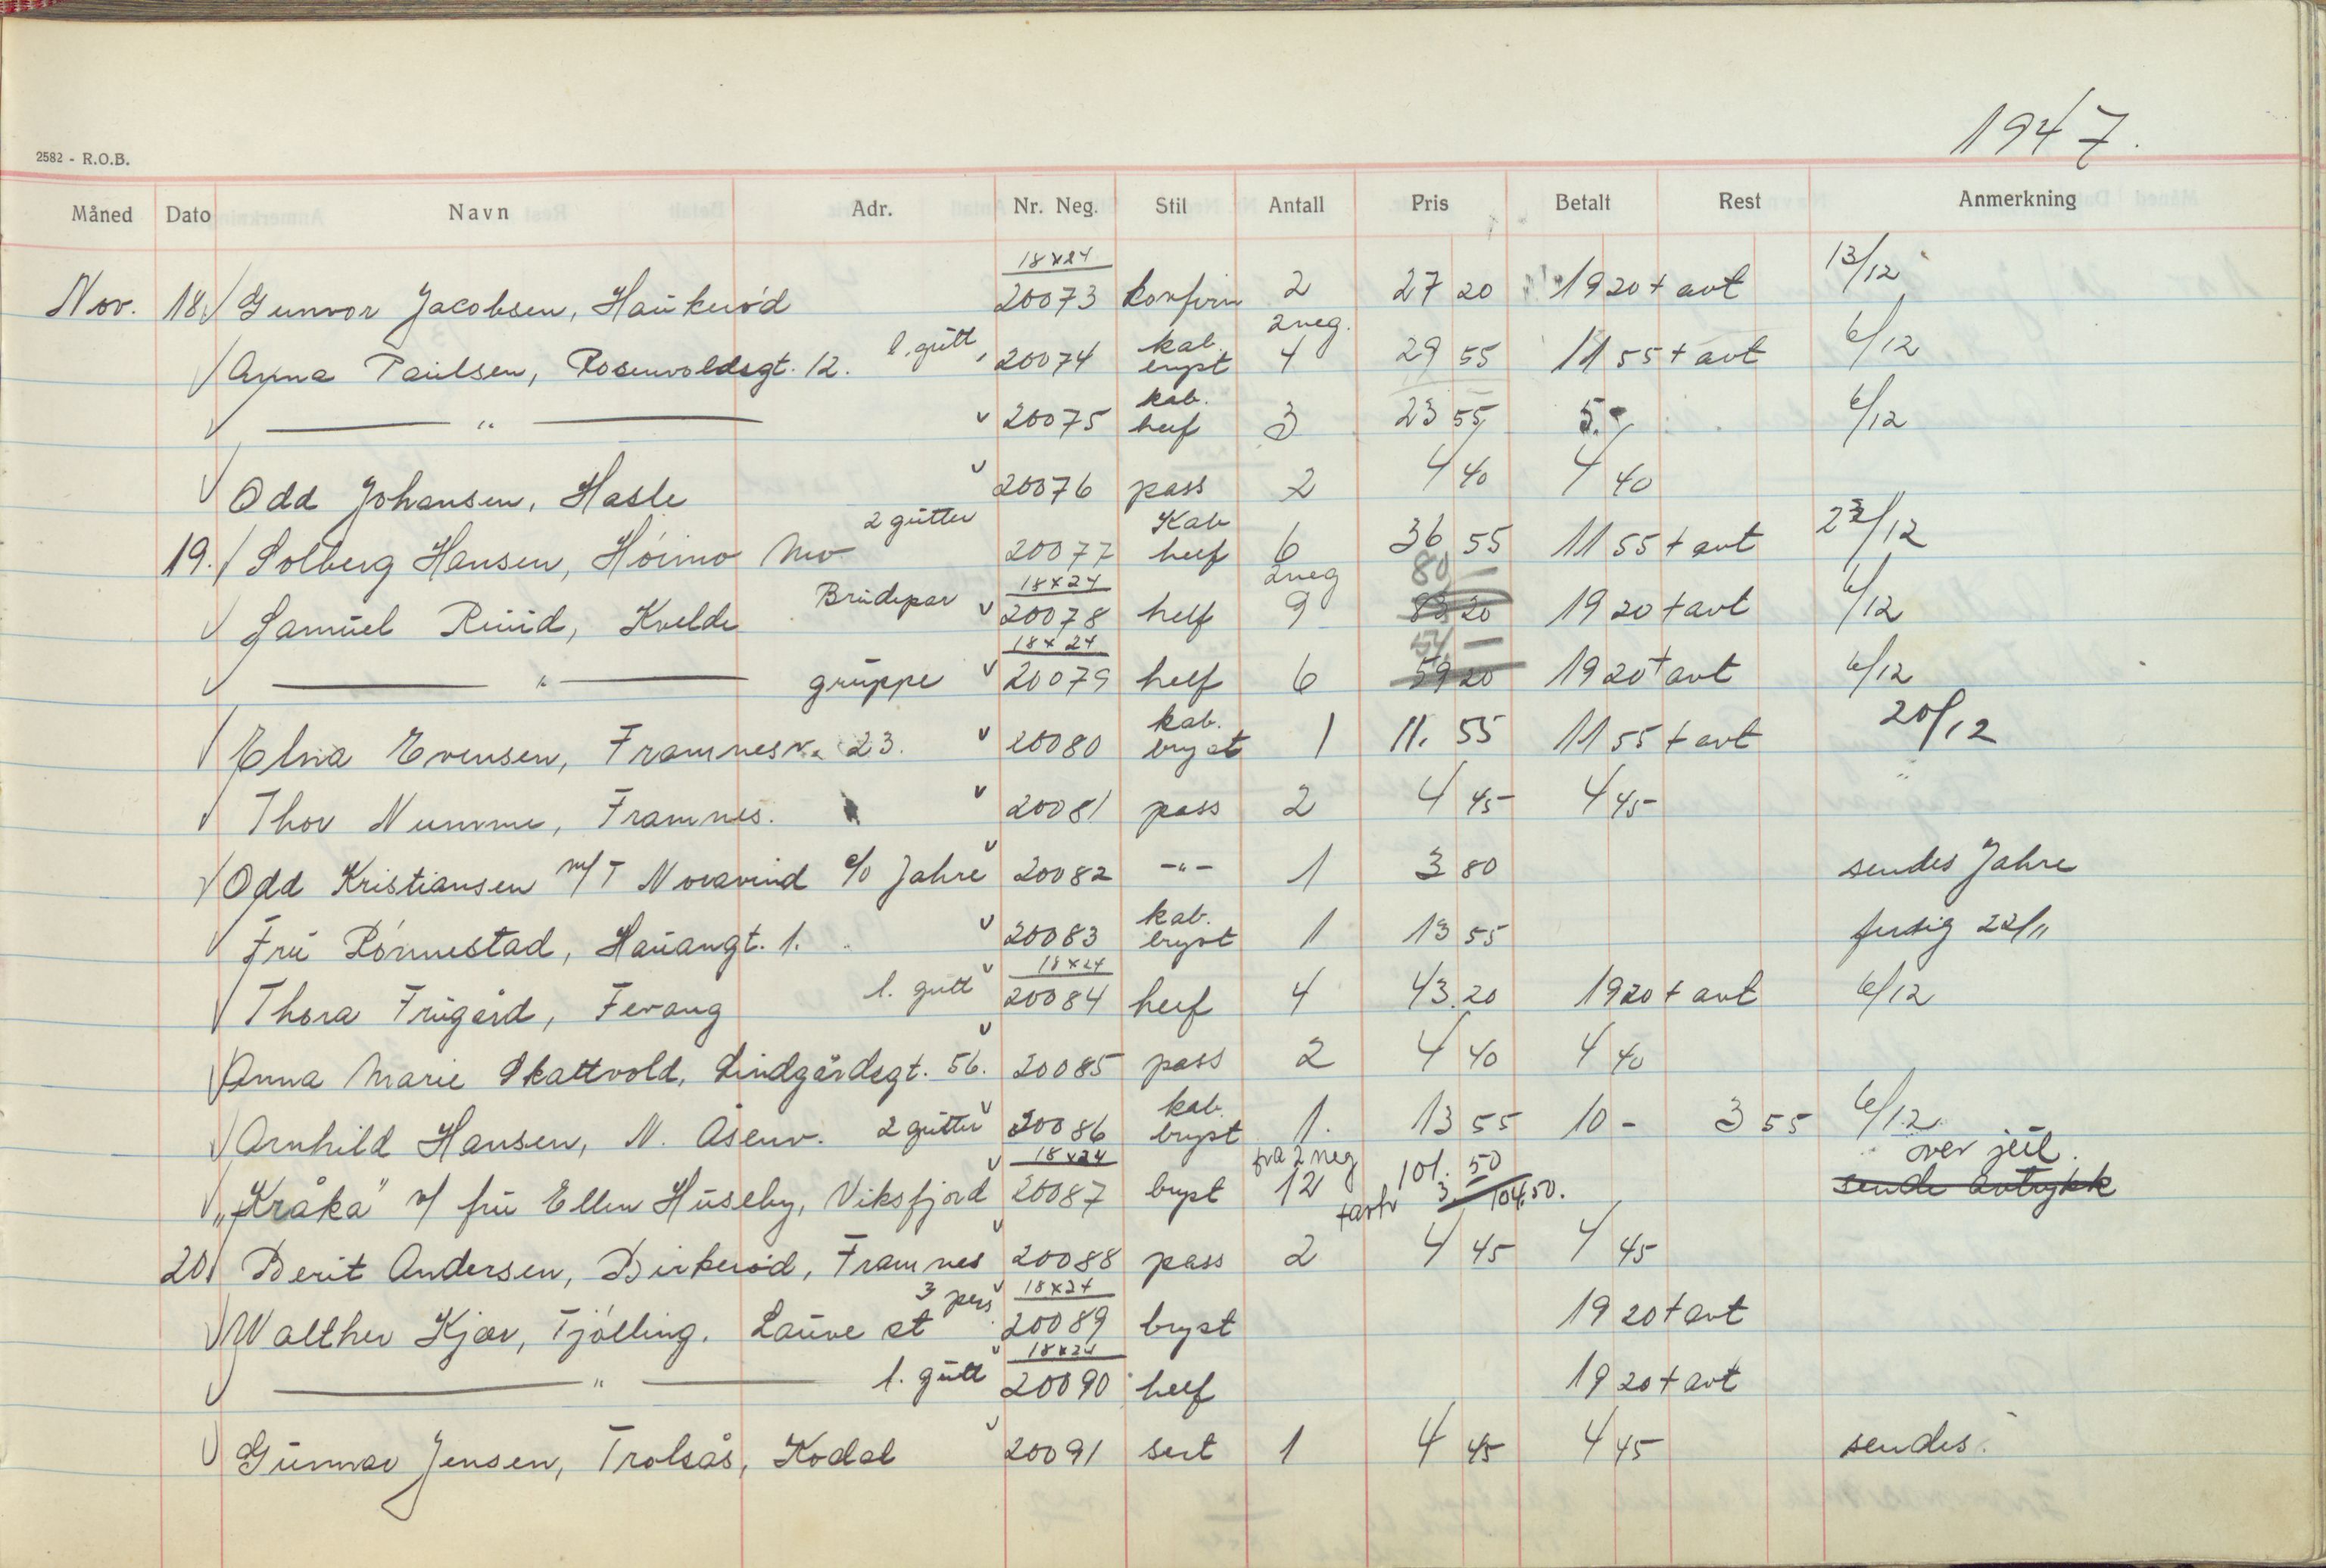 1947.
2582 - R.O.B.
Måned Dato Navn Adr. Nr. Neg. Stil Antall Pris Betalt Rest Anmerkning
Nov. 18. Gunvor Jacobsen, Haukerød 18x24 20073 konfirm 2 27 20 19 20 + avt 13/12
Anna Paulsen, Rosenvoldsgt. 12. l. gutt 20074 kab. bryst 2 neg. 4 29 55 11 55 + avt 6/12
— " — 20075 kab. helf 3 23 55 5.- 6/12
Odd Johansen, Hasle 20076 pass 2 4 40 4 40
19. Solberg Hansen, Høimo 2 gutter 20077 Kab helf 6 36 55 11 55 + avt 22/12
Samuel Ruud, Kvelde Brudepar 18x24 20078 helf 2 neg 9 83 20 80 — 19 20 + avt 6/12
— " — gruppe 18x24 20079 helf 6 59 20 54 — 19 20 + avt 6/12
Elna Evensen, Framnesv. 23. 20080 kab. bryst 1 11. 55 11 55 + avt 20/12
Thor Numme, Framnes. 20081 pass 2 4 45 4 45
Odd Kristiansen m/T Noravind c/o Jahre 20082 -"- 1 3 80 sendes Jahre
Fru Rønnestad, Hauangt. 1. 20083 kab. bryst 1 13 55 ferdig 22/11
Thora Frugård, Fevang l. gutt 18x24 20084 helf 4 43.20 19 20 + avt 6/12
Anna Marie Skattvold, Lindgårdsgt. 56. 20085 pass 2 4 40 4 40
Arnhild Hansen, N. Åsenv. 2 gutter 20086 kab. bryst 1. 13 55 10 - 3 55 6/12.
"Kråka" v/ fru Ellen Huseby, Viksfjord 18x24 20087 bryst fra 2 neg 12 101. 50 3 — 104.50. over jul. sende avtrykk
20. Berit Andersen, Birkerød, Framnes 20088 pass 2 4 45 4 45
Walther Kjær, Tjølling. Lauve st 3 pers 18x24 20089 bryst 19 20 + avt
— " — l. gutt 18x24 20090 helf 19 20 + avt
Gunnar Jensen, Trolsås, Kodal 20091 sert 1 4 45 4 45 sendes.